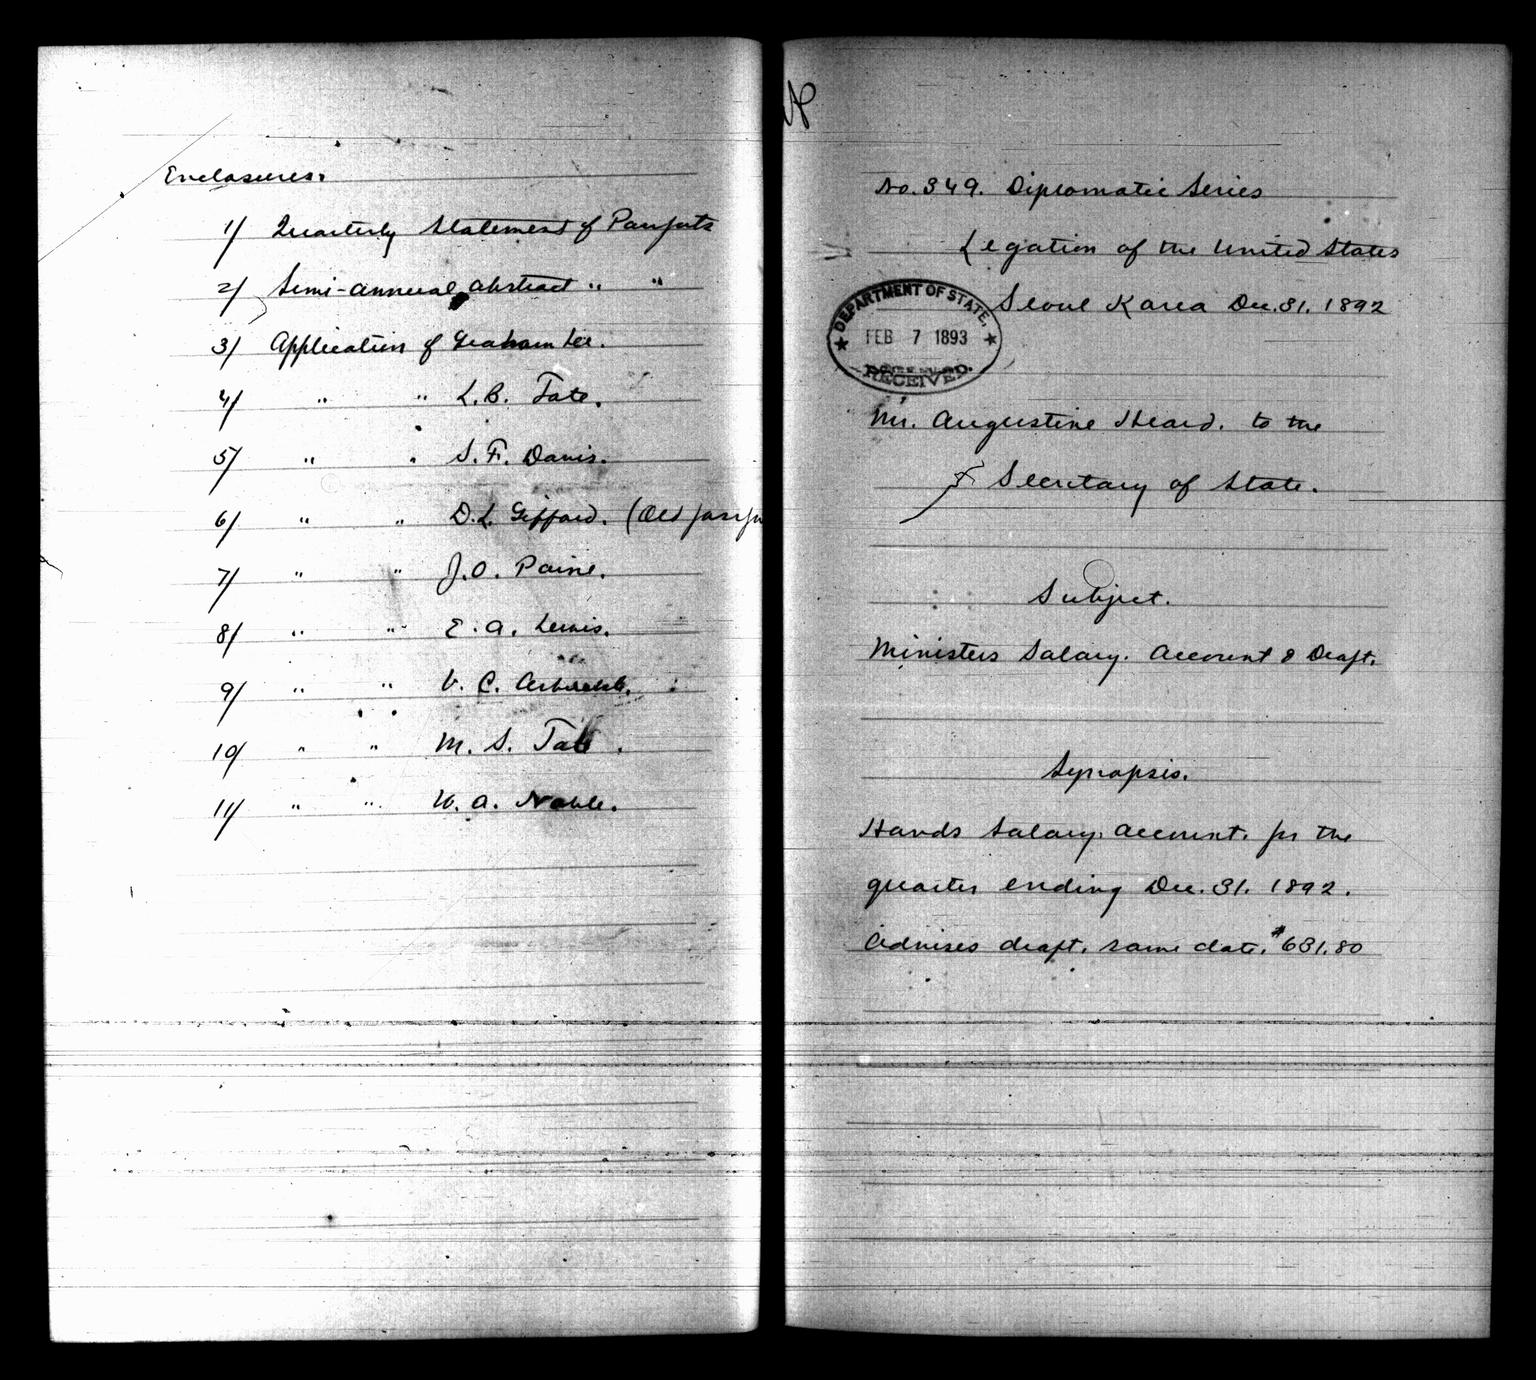 Enclosures.
1/ Quarterly Statement of Passports
2/ Semi-annual abstract " "
3/ Application of Graham Lee.
4/ " " L.B. Tate.
5/ " " S.F. Davis.
6/ " " D.L. Gifford. (Old
7/ " " J.O. Paine.
8/ " " E.A. Lewis.
9/ " " V.C. Arbuckle.
10/ " " M.S. Tate.
11/ " " W.A. Noble.
No. 349. Diplomatic Series
Legation of the United States
Seoul Korea Dec. 31. 1892
DEPARTMENT OF STATE.
FEB 7 1893
RECEIVED.
Mr. Augustine Heard. to the
Secretary of State.
Subject.
Ministers Salary. Account & Draft.
Synopsis.
Hands Salary. account. for the
quarter ending Dec. 31. 1892.
Advises draft. same date. $631.80